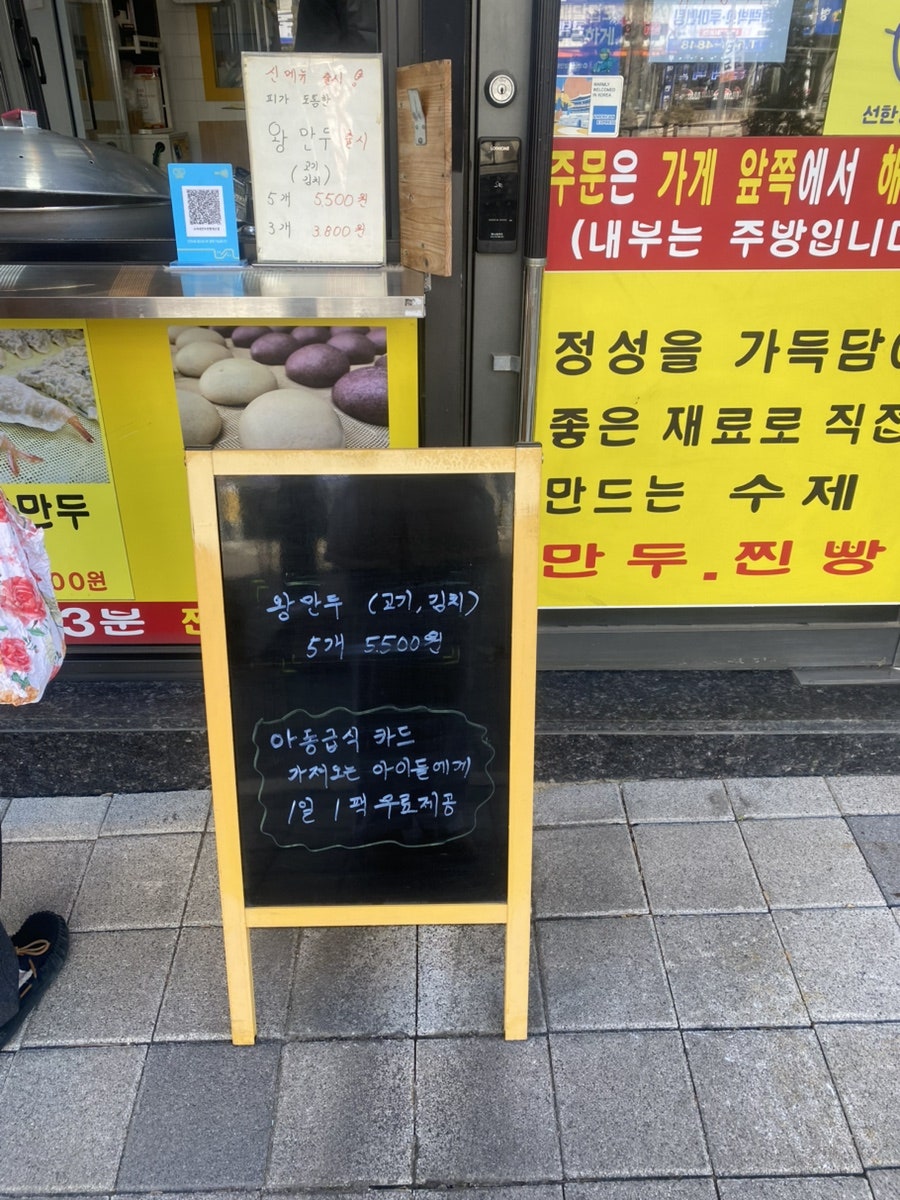 신메뉴 출시
피가 도톰한
왕만두 출시
(고기
김치)
5개 5,500원
3개 3.800원
WARMLY
WELCOMED
IN KOREA
선한
주문은 가게 앞쪽에서 해
(내부는 주방입니다
정성을 가득담아
좋은 재료로 직접
만드는 수제
만두.찐빵
만두
00원
3분
왕만두 (고기, 김치)
5개 5.500원
아동급식 카드
가져오는 아이들에게
1일 1팩 무료제공